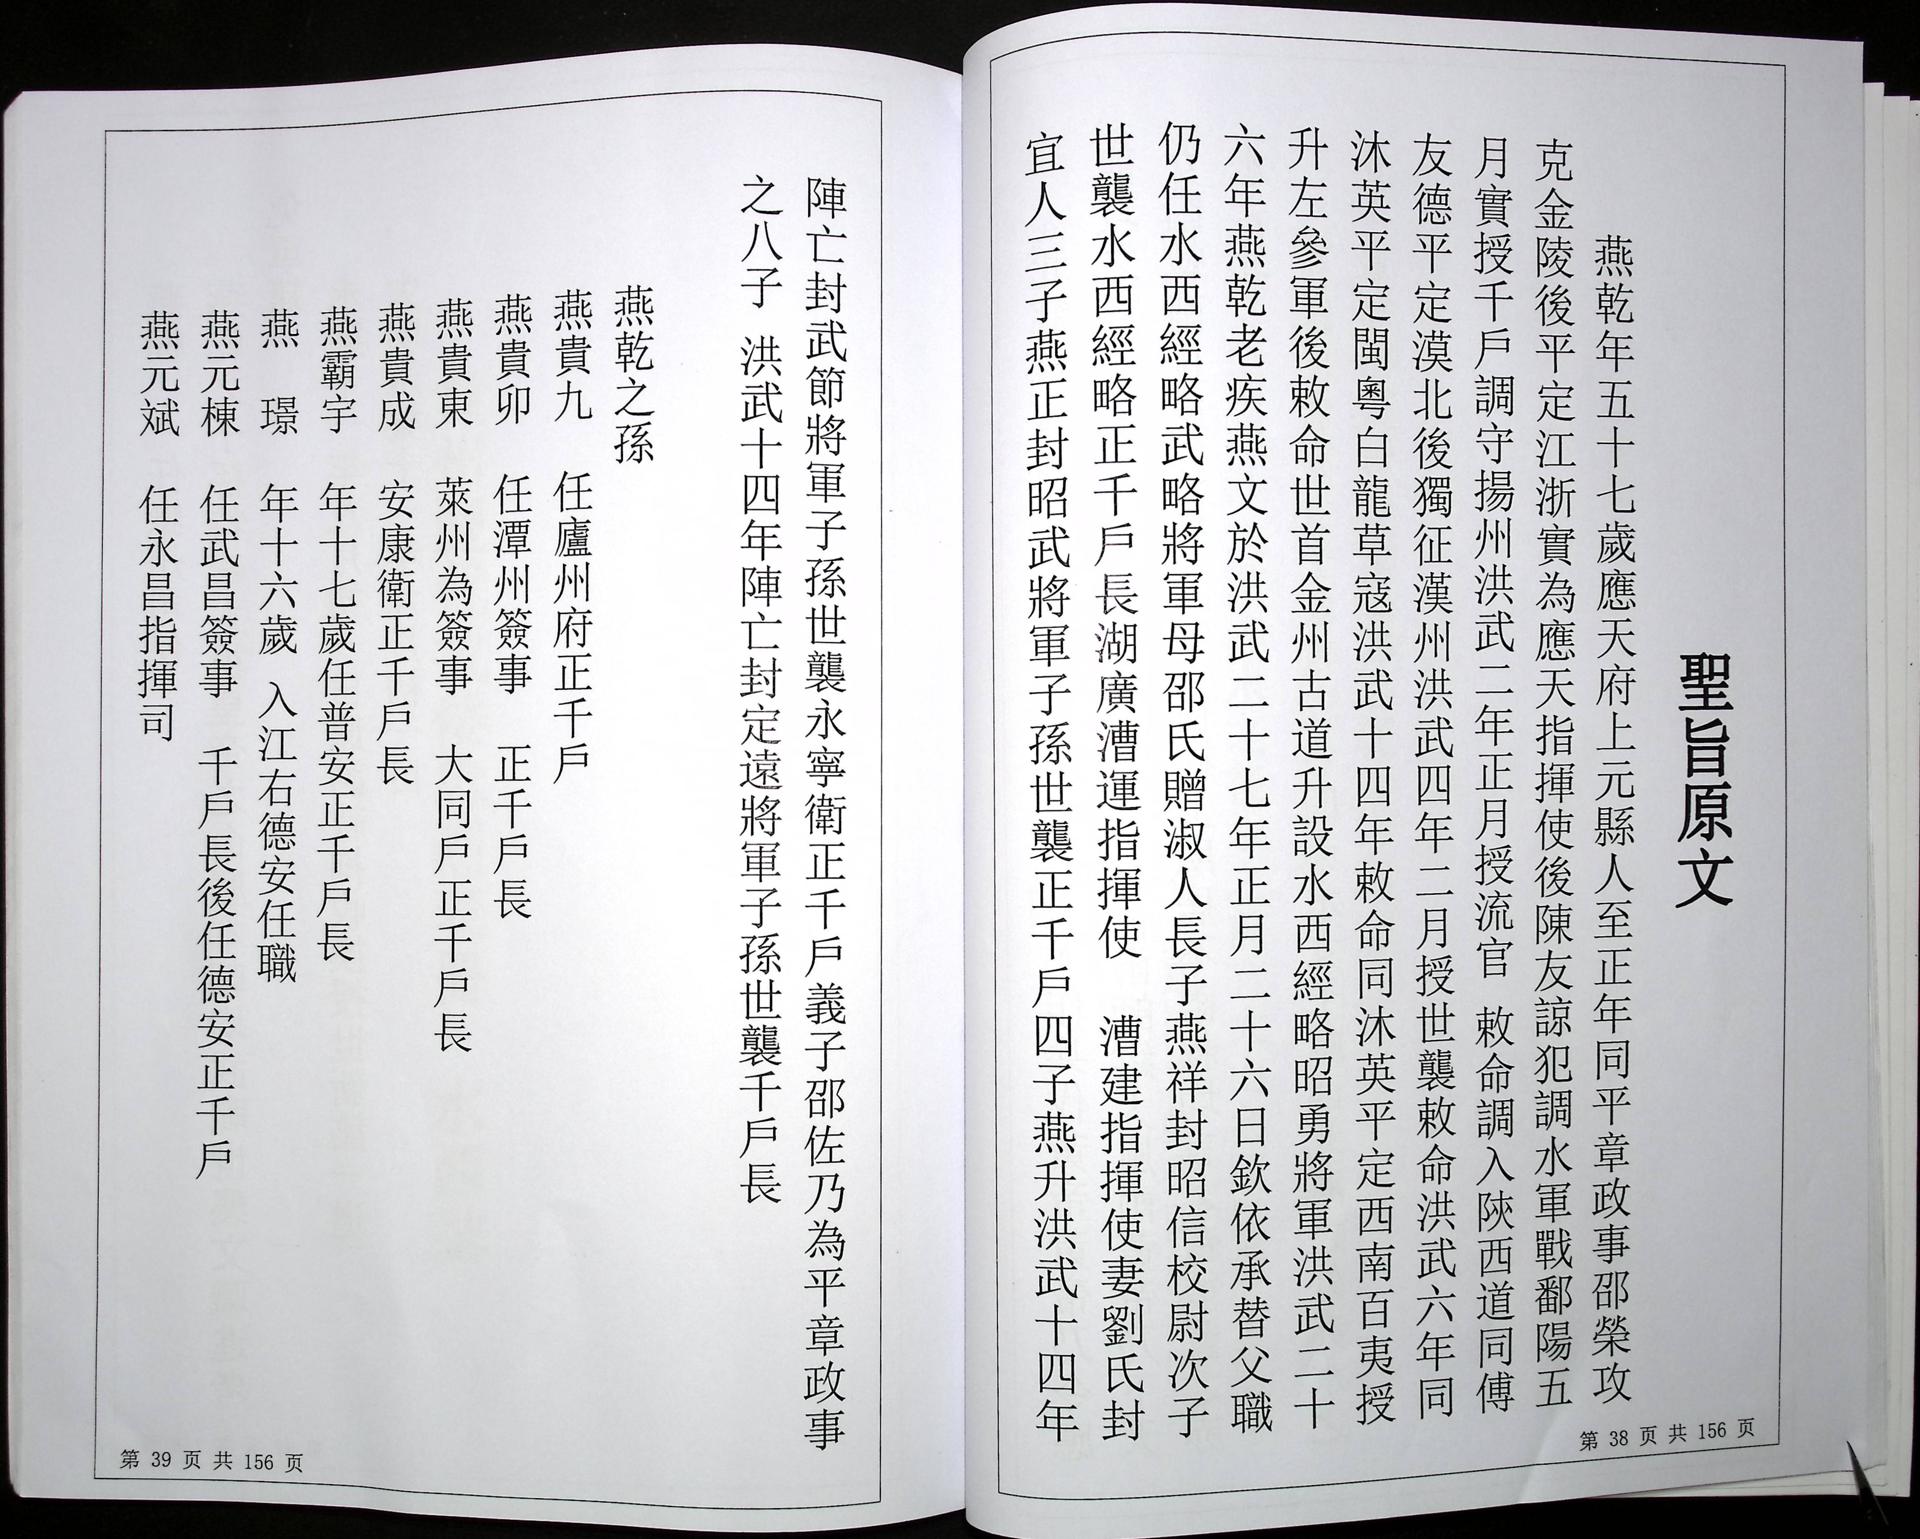 聖旨原文
燕乾年五十七歲應天府上元縣人至正年同平章政事邵榮攻
克金陵後平定江浙實為應天指揮使後陳友諒犯調水軍戰鄱陽五
月實授千戶調守揚州洪武二年正月授流官 敕命調入陝西道同傅
友德平定漠北後獨征漢州洪武四年二月授世襲敕命洪武六年同
沐英平定閩粵白龍草寇洪武十四年敕命同沐英平定西南百夷授
升左參軍後敕命世首金州古道升設水西經略昭勇將軍洪武二十
六年燕乾老疾燕文於洪武二十七年正月二十六日欽依承替父職
仍任水西經略武略將軍母邵氏贈淑人長子燕祥封昭信校尉次子
世襲水西經略正千戶長湖廣漕運指揮使 漕建指揮使妻劉氏封
宜人三子燕正封昭武將軍子孫世襲正千戶四子燕升洪武十四年
第 38 页 共 156 页
陣亡封武節將軍子孫世襲永寧衛正千戶義子邵佐乃為平章政事
之八子 洪武十四年陣亡封定遠將軍子孫世襲千戶長
燕乾之孫
燕貴九 任廬州府正千戶
燕貴卯 任潭州簽事 正千戶長
燕貴東 萊州為簽事 大同戶正千戶長
燕貴成 安康衛正千戶長
燕霸宇 年十七歲任普安正千戶長
燕 璟 年十六歲 入江右德安任職
燕元棟 任武昌簽事 千戶長後任德安正千戶
燕元斌 任永昌指揮司
第 39 页 共 156 页